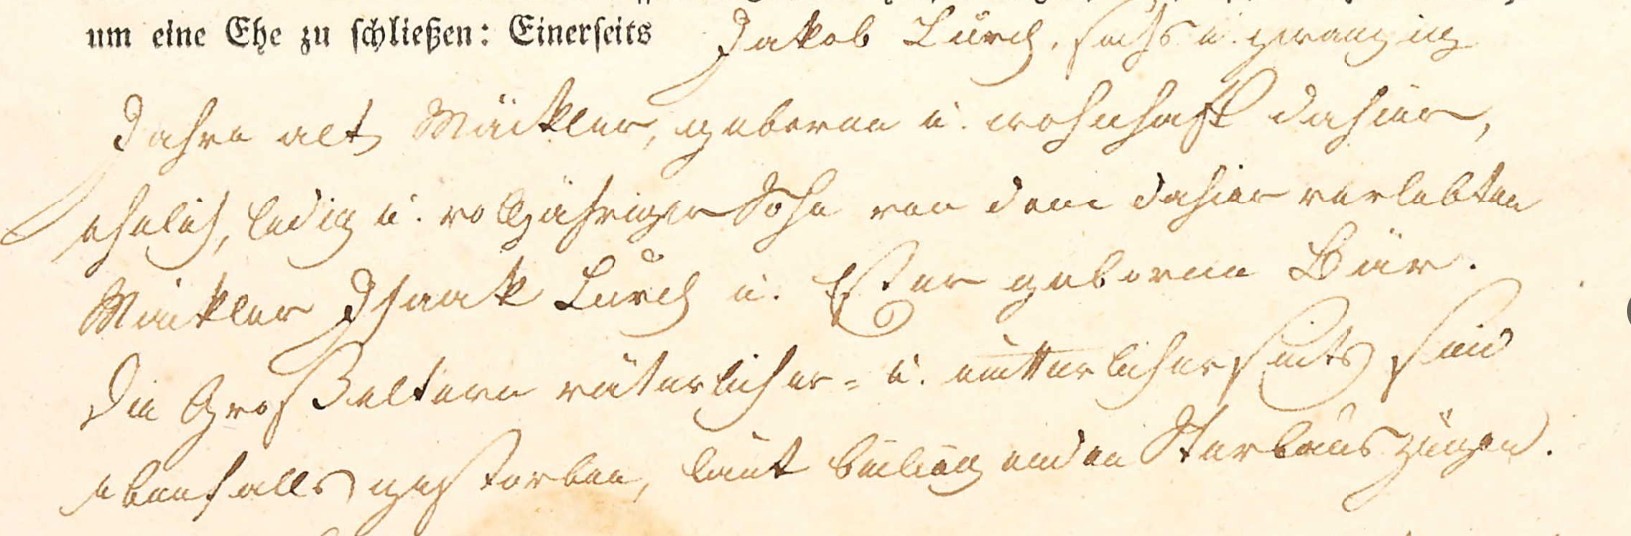 um eine Ehe zu schließen: Einerseits Jakob Lurch, sechs u. zwanzig
Jahre alt, Mäckler, geboren u. wohnhaft dahier,
ehelich, ledig u. volljähriger Sohn von dem dahier verlebten
Mäckler Isaak Lurch u. Ester geborene Bär.
Die Großeltern väterlicher- u. mütterlicherseits sind
ebenfalls gestorben, laut beiliegenden Sterbauszügen.